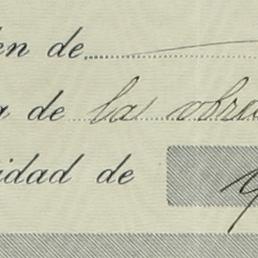 en de
a de la obre
idad de